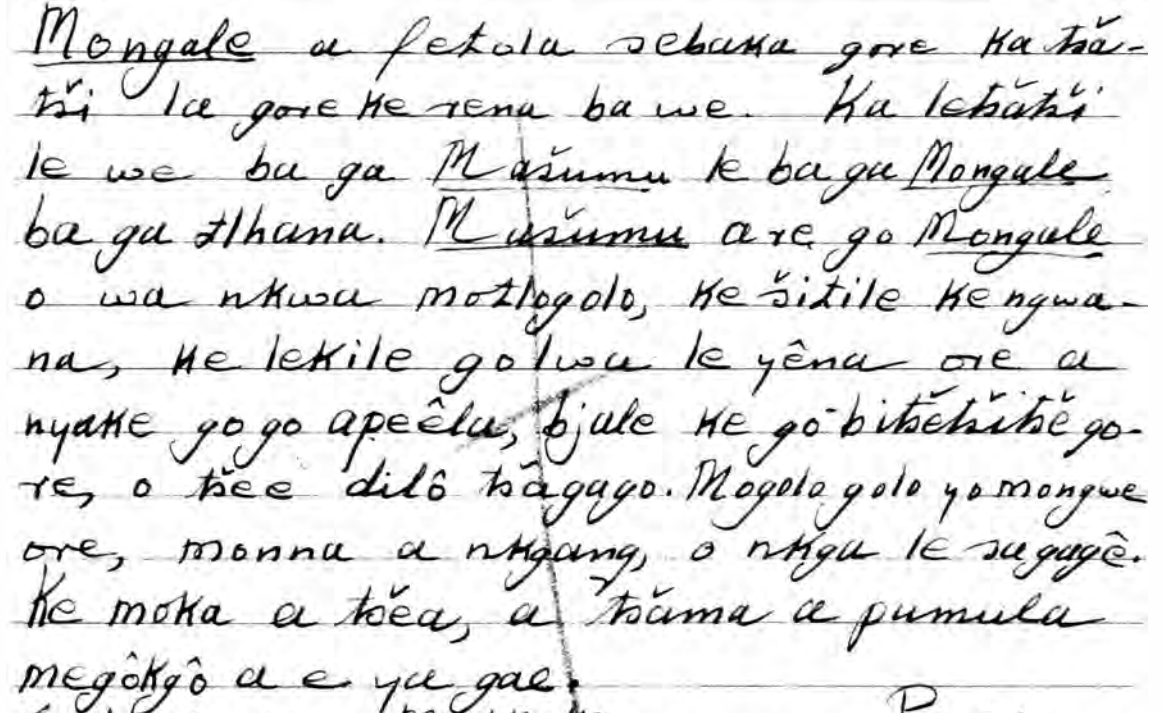 Mongale a fetola sebaka gore ka tša-
tši la gore ke rena ba we. Ka letšatši
le we ba ga Mašumu le ba ga Mongale
ba ga tlhana. Mašumu a re go Mongale
o wa nkwa motlogolo, ke šitile ke ngwa-
na, ke lekile go lwa le yêna ore a
nyake go go apeêla, bjale ke go bitšetšitšê go-
re, o tšee dilô tšâgago. Mogolo golo yo mongwe
ore, monna a nkgang, o nkga le sagagê.
Ke moka a tšêa, a tšama a pumula
megôkgô a e ya gae.